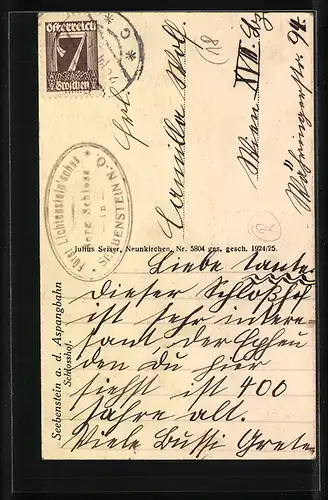 Österreich
7
Groschen
Fürst Liechtenstein'sches
Berg Schloss
in
SEEBENSTEIN N.-Ö.
Frl.
Camilla Wolf
Wien XVIII.
Währingerstr 94.
(18
R
Julius Seiser, Neunkirchen, Nr. 5804 ges. gesch. 1924/25.
Seebenstein a. d. Aspangbahn
Schlosshof.
Liebe Tante
Dieser Schloßhof
ist sehr intere-
sant der Epheu
den du hier
siehst ist 400
Jahre alt.
Viele Bussi Grete